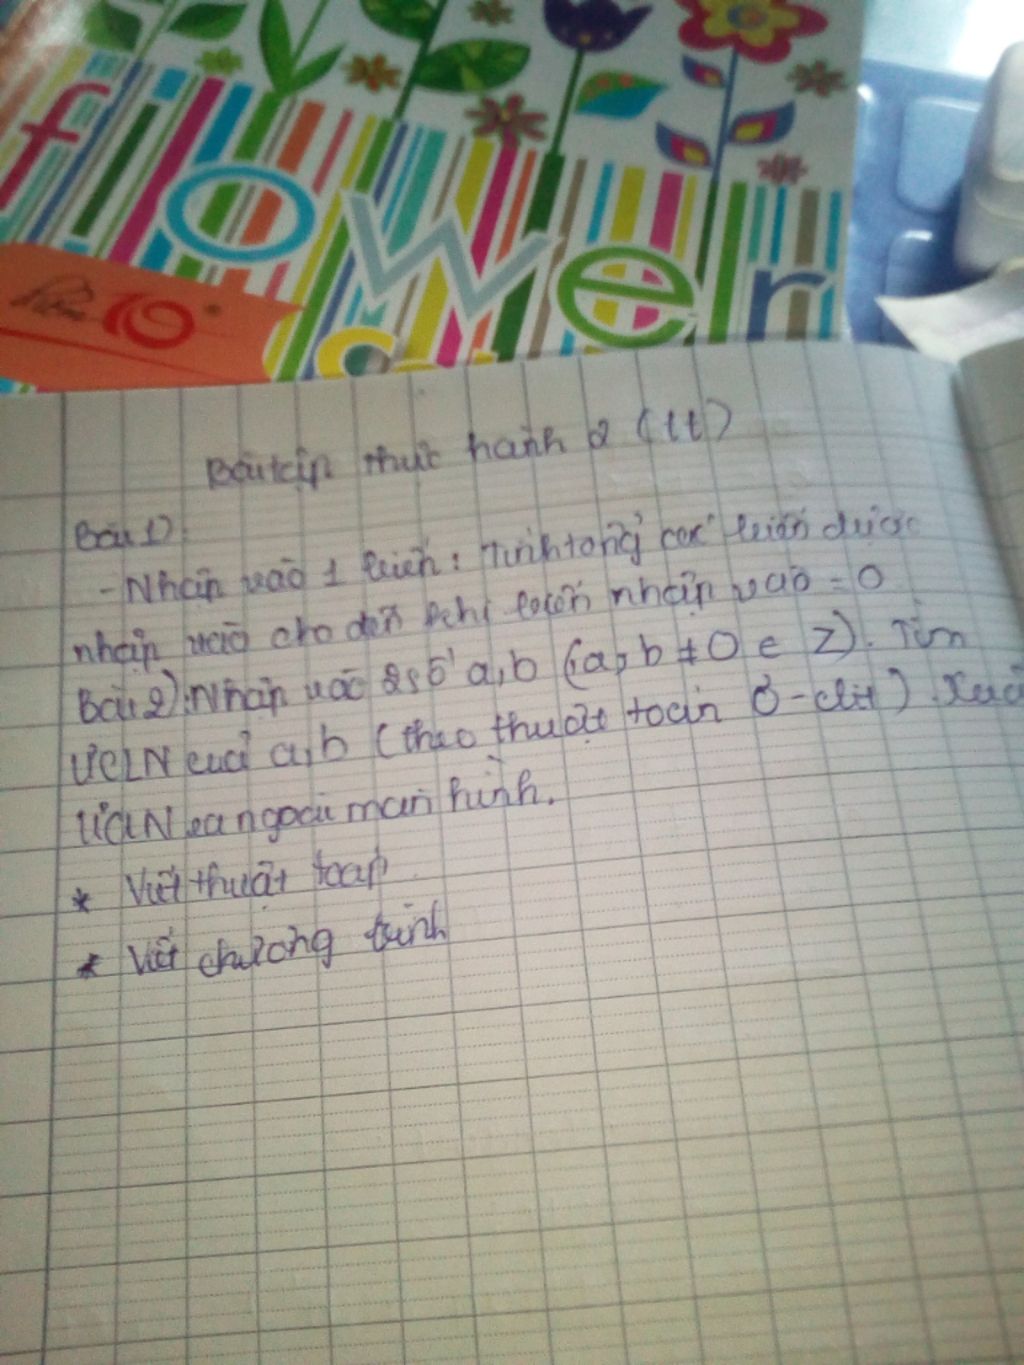 flower
Bài tập thực hành 2 (tt)
Bài 1):
- Nhập vào 1 biến: Tính tổng các biến được
nhập vào cho đến khi biến nhập vào = 0
Bài 2): Nhập vào 2 số a, b (a, b ≠ 0 ∈ Z). Tìm
ƯCLN của a, b (theo thuật toán Ơ-clit). Xuất
ƯCLN ra ngoài màn hình.
* Viết thuật toán
* Viết chương trình